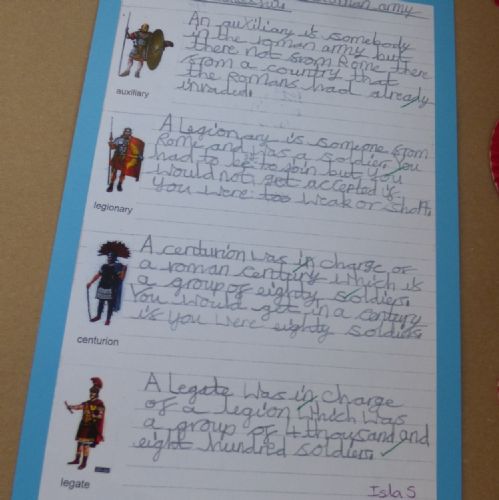 Roman army
An auxiliary is somebody
in the roman army but
there not from Rome there
from a country that
the Romans had already
invaded.
auxiliary
A legionary is someone from
Rome and was a soldier. You
had to be to join but you
would not get accepted if
you were too weak or short.
legionary
A centurion was in charge of
a roman century which is
a group of eighty soldiers.
You would get in a century
if you were eighty soldiers.
centurion
A legate was in charge
of a legion which was
a group of 4 thousand and
eight hundred soldiers.
legate
Isla S